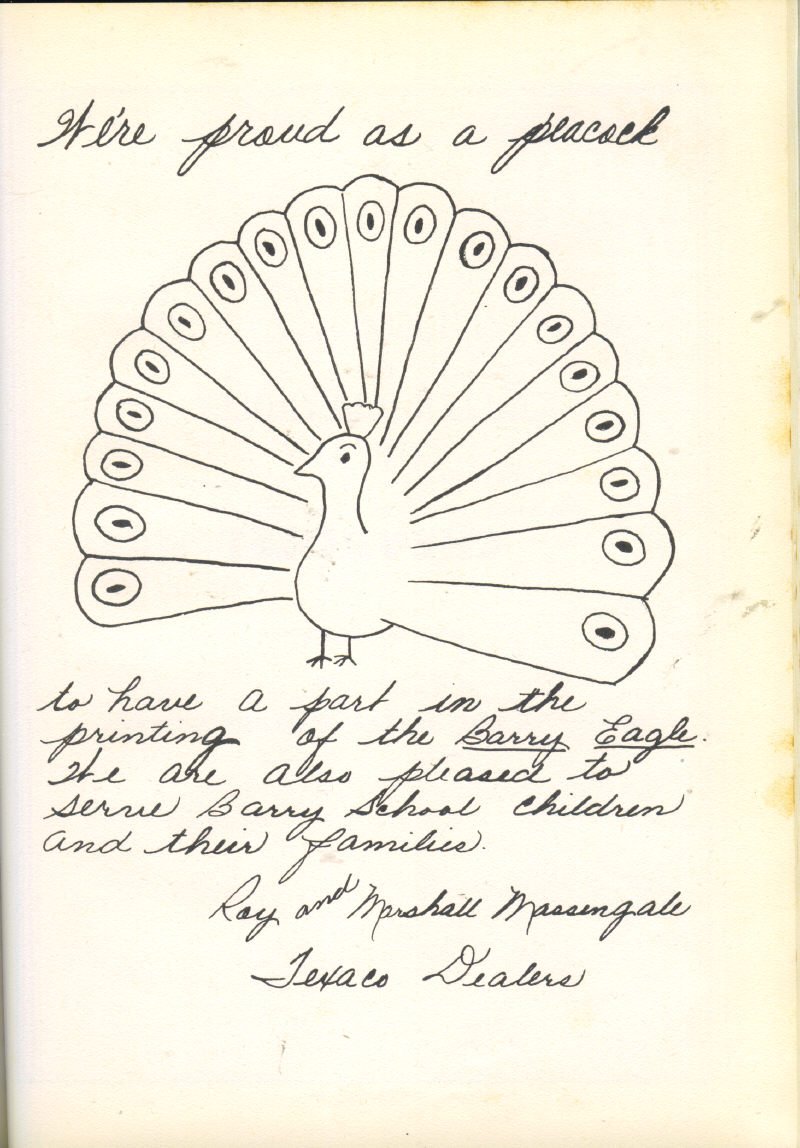 We're proud as a peacock
to have a part in the
printing of the Barry Eagle.
We are also pleased to
serve Barry School children
and their families.
Roy and Marshall Massengale
Texaco Dealers